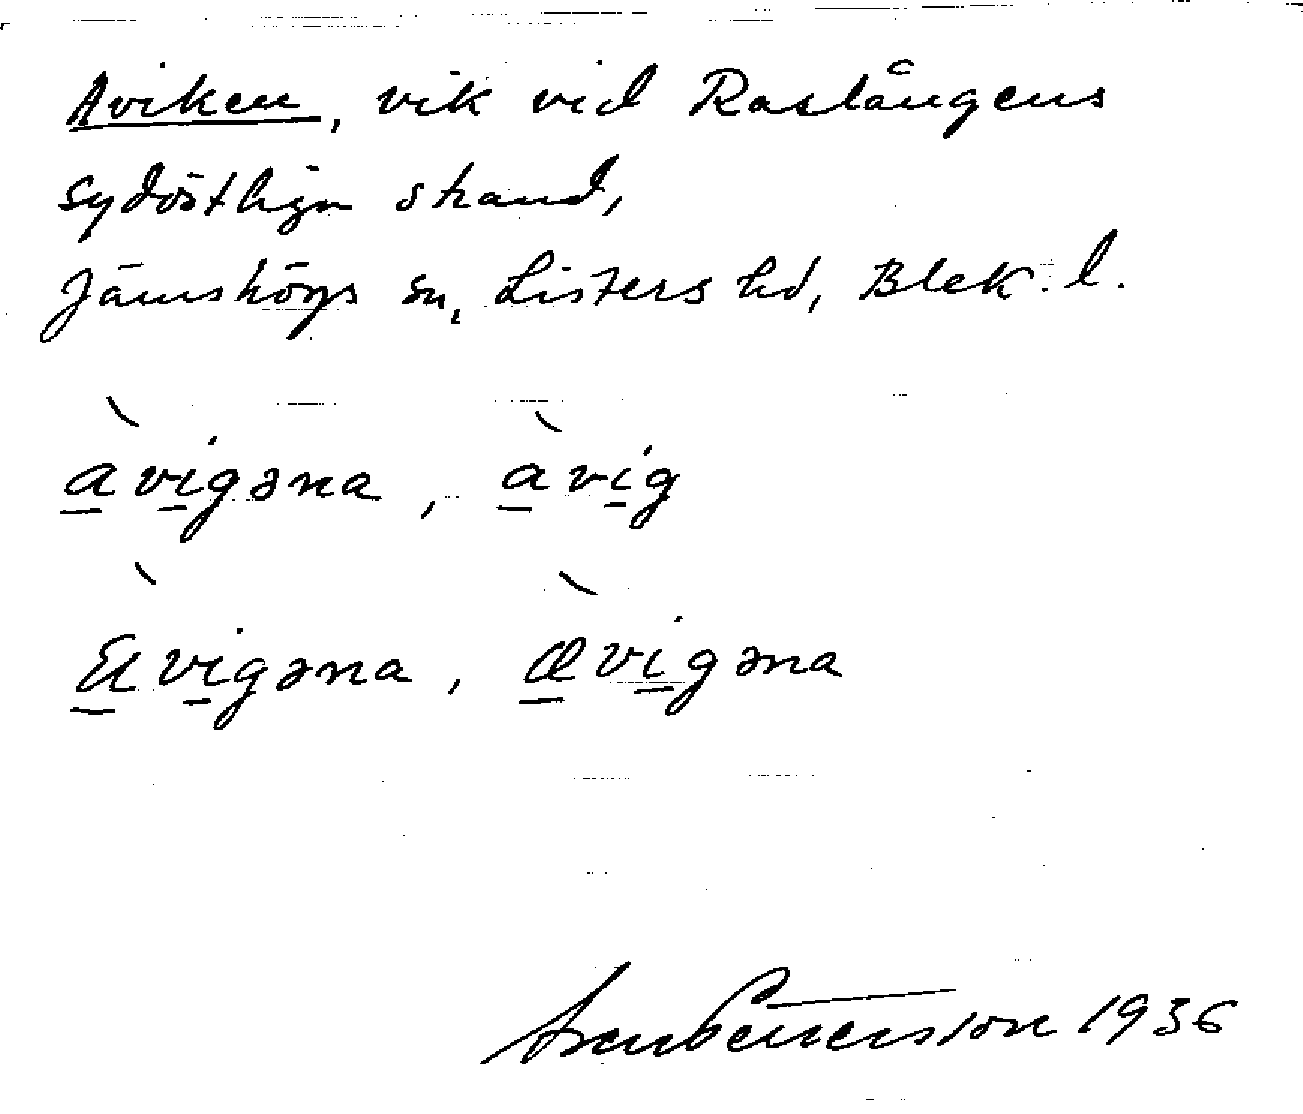 Aviken, vik vid Raslångens
sydöstliga strand,
Jämshögs sn, Listers hd, Blek. l.
àvigəna, àvig
ɛ̀vigəna, æ̀vigəna
1936